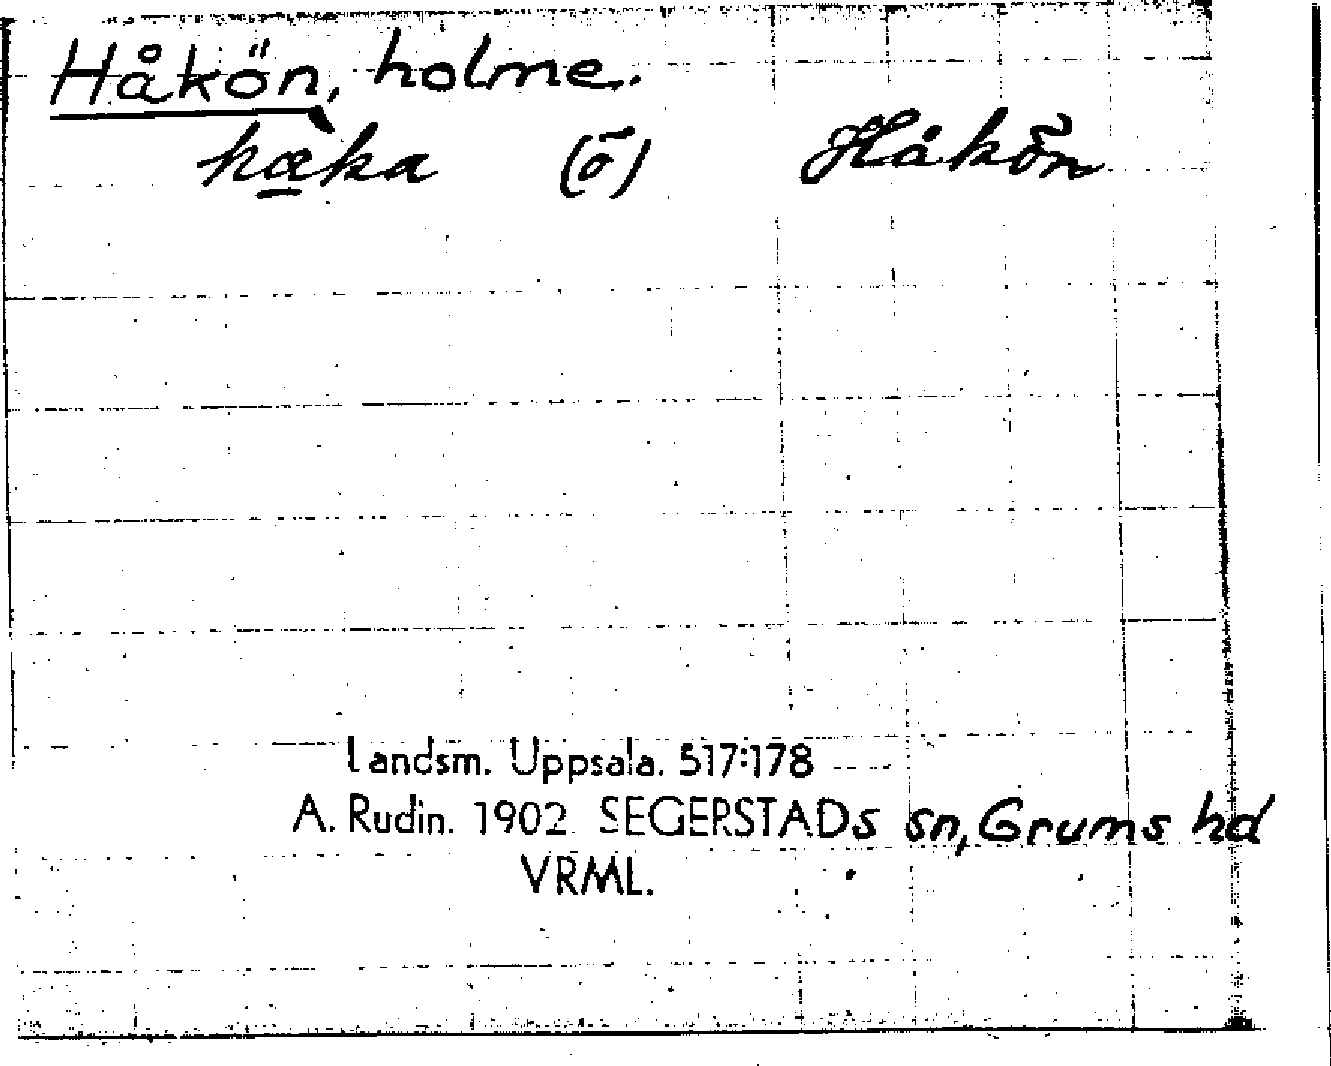 Håkön, holme.
hæ̱̀ka (ȫ) Håkön
Landsm. Uppsala. 517:178
A. Rudin. 1902 SEGERSTADs sn, Grums hd
VRML.